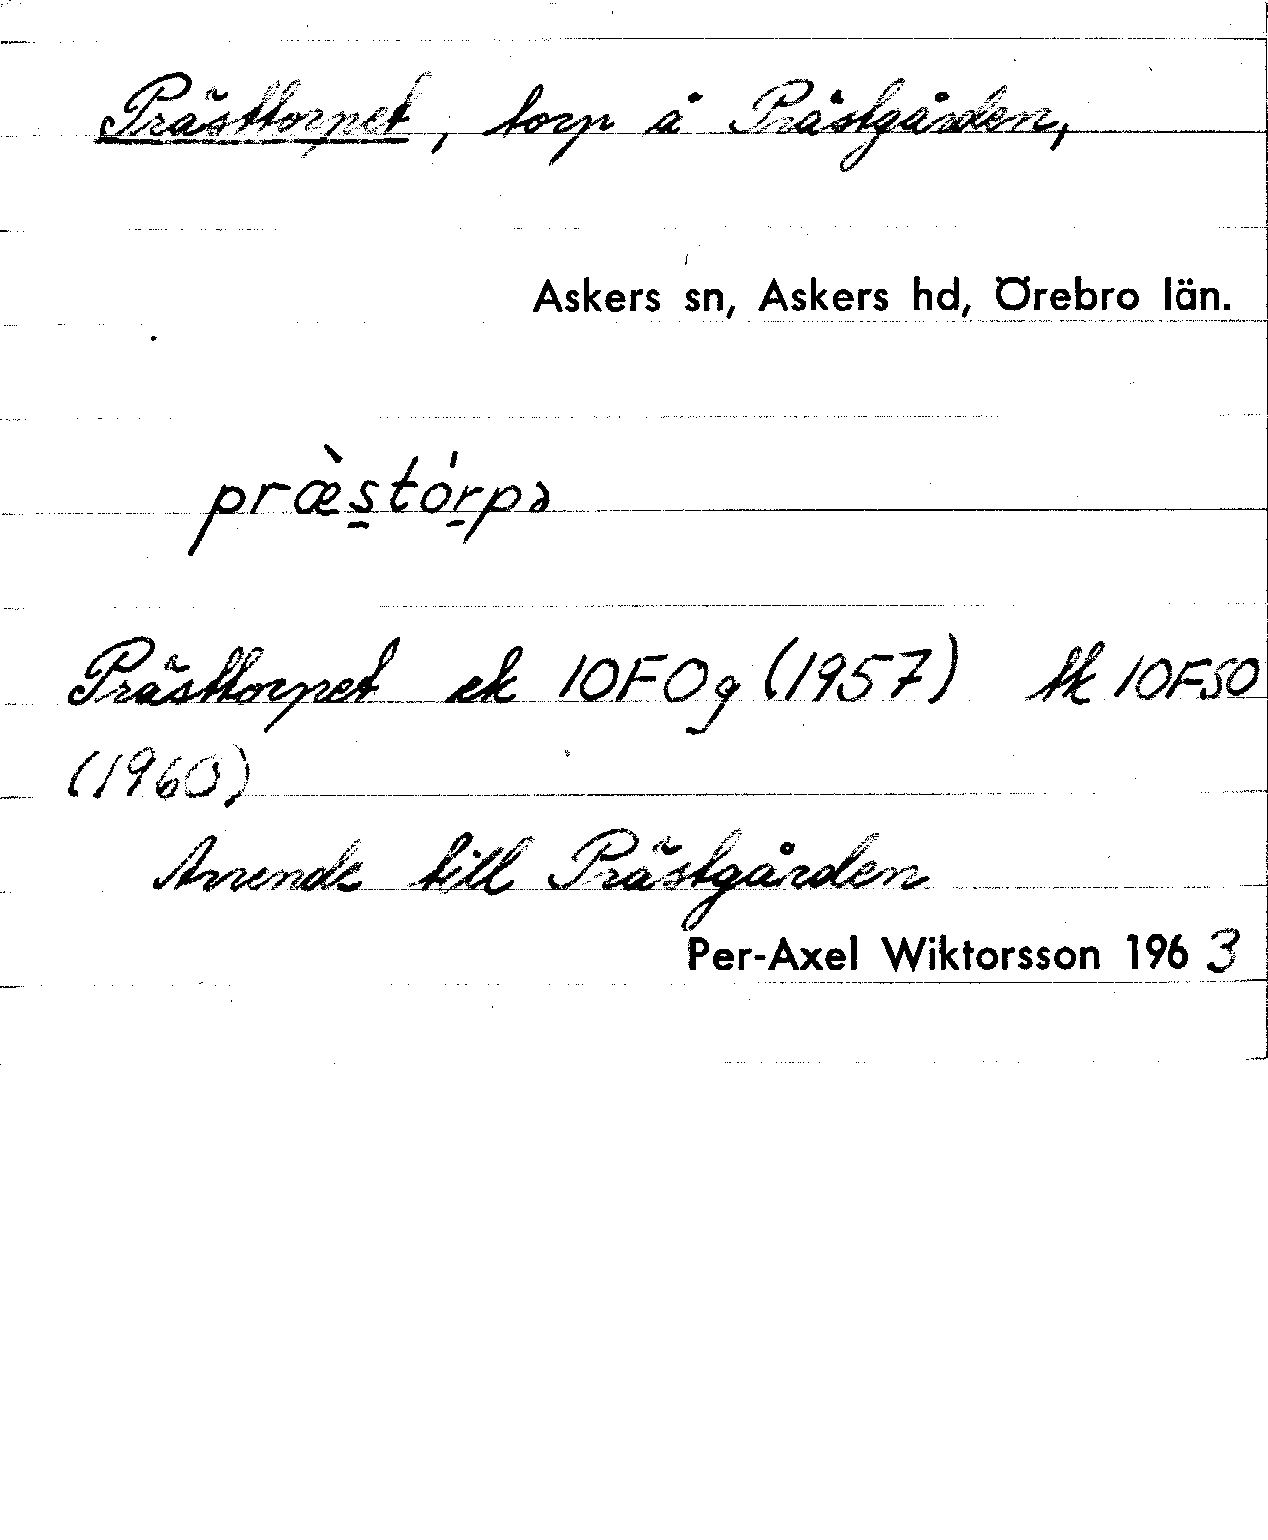 Prästtorpet, torp å Prästgården,
Askers sn, Askers hd, Örebro län.
præ̀s̱tórp̱ə
Prästtorpet ek 10F0g (1957) tk 10FSO
(1960)
Arrende till Prästgården
Per-Axel Wiktorsson 1963